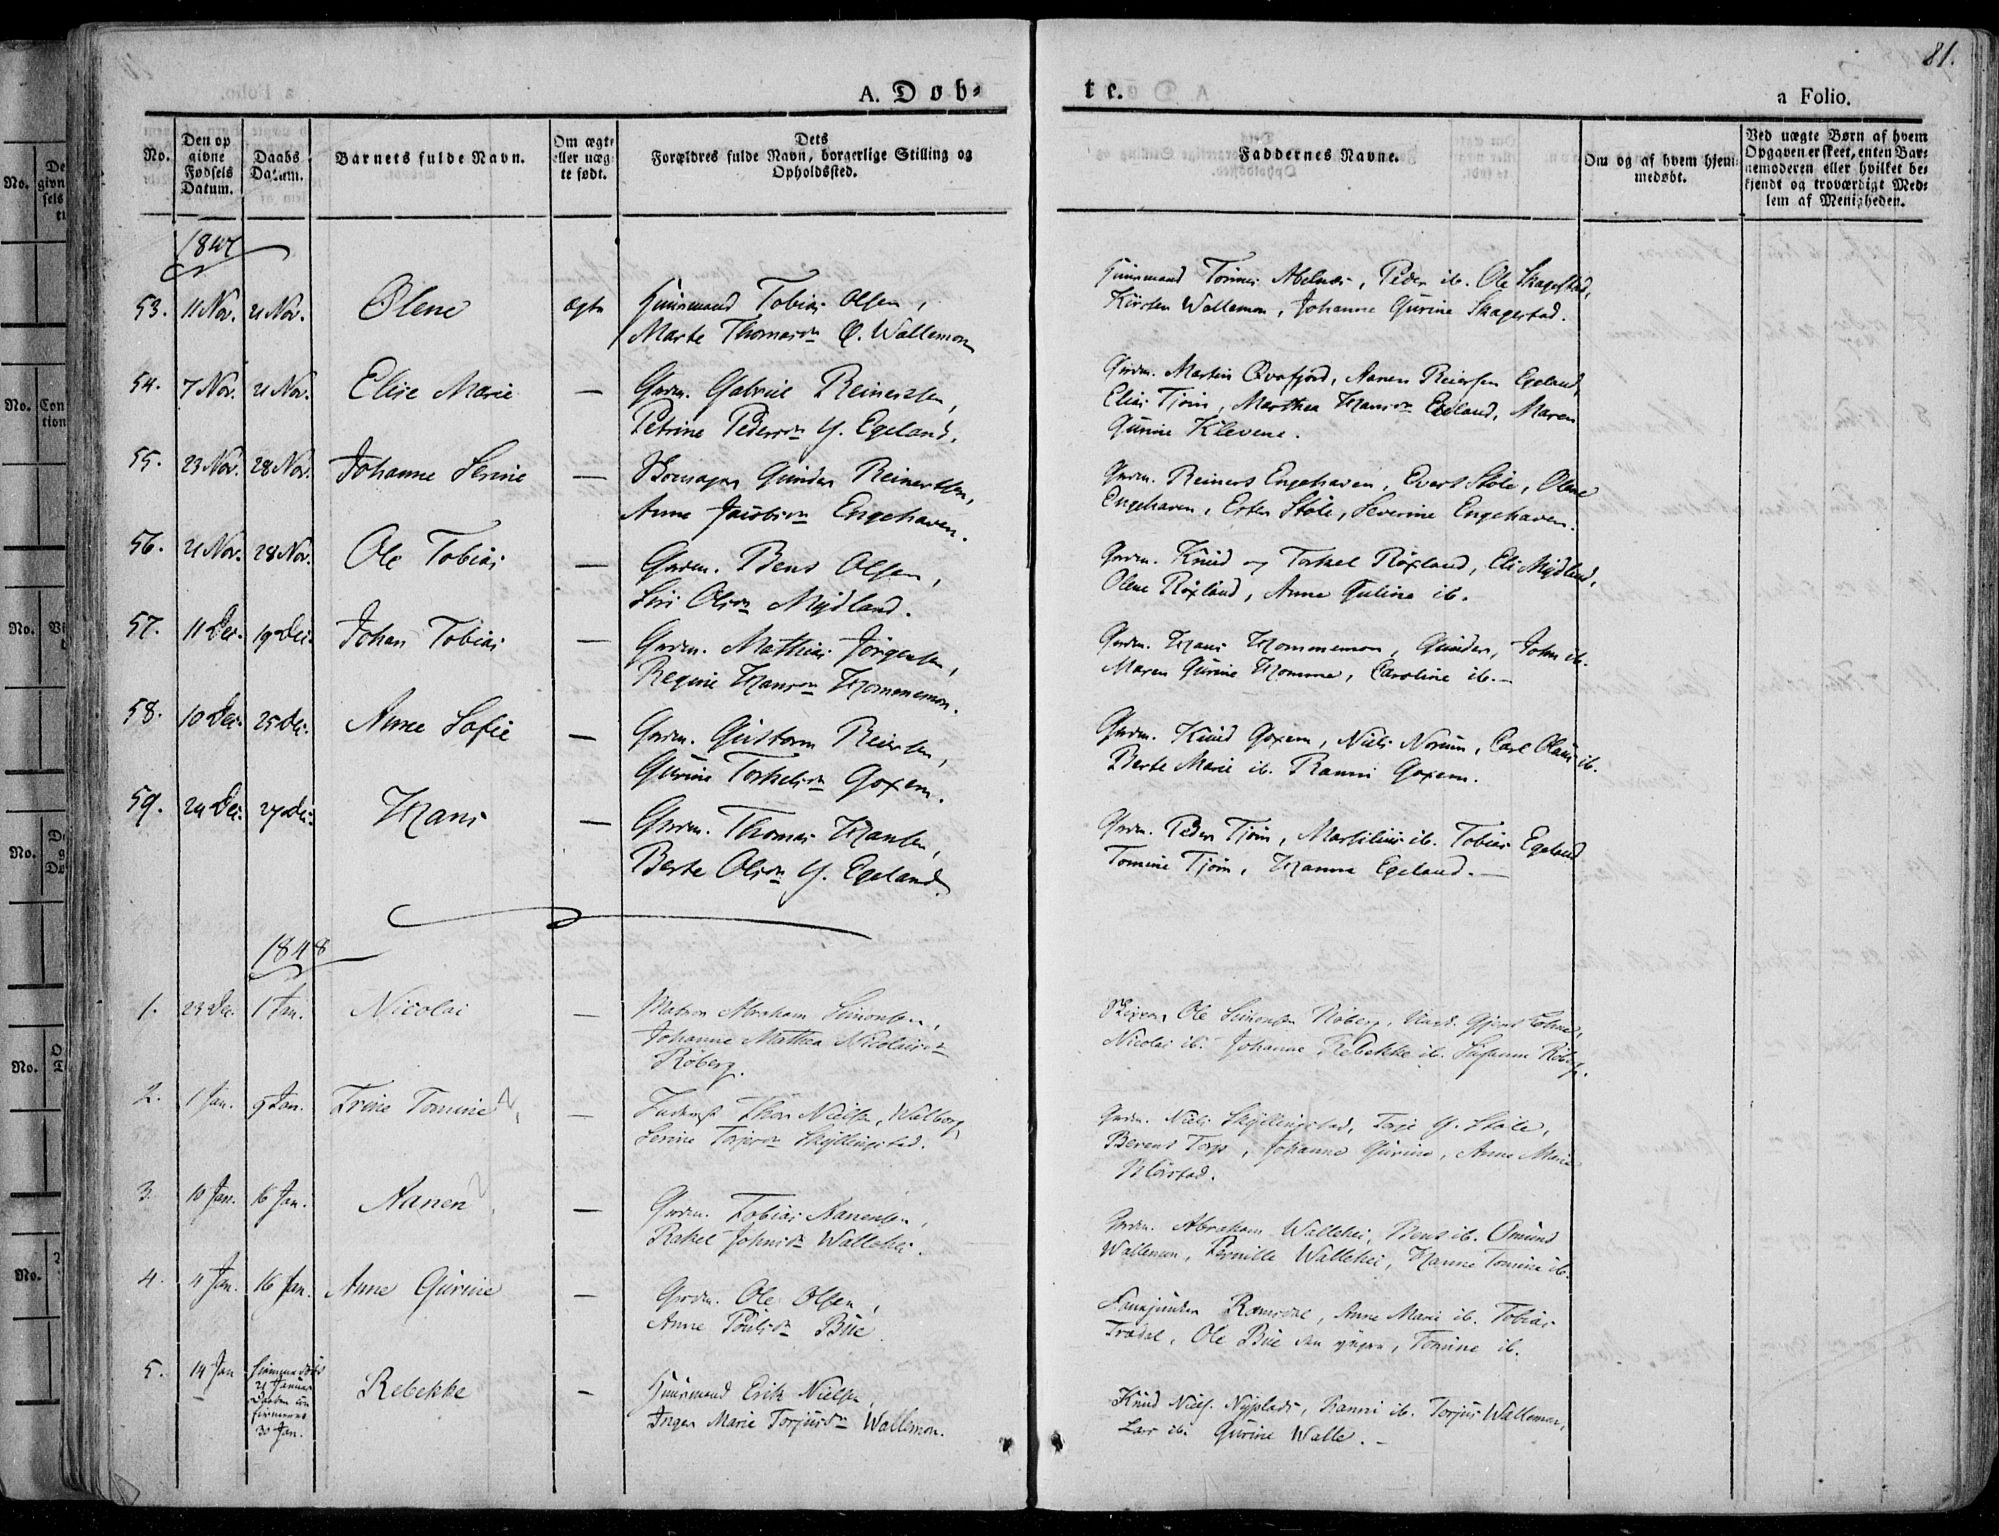 81.
A. Døb-
te.
a Folio.
No.
Den op
givne
Fødsels
Datum.
Daabs
Datum.
Barnets fulde Navn.
Om ægte
eller uæg-
te født.
Dets
Forældres fulde Navn, borgerlige Stilling og
Opholdssted.
Faddernes Navne.
Om og af hvem hjem-
medøbt.
Ved uægte Børn af hvem
Opgaven er skeet, enten Bar-
nemoderen eller hvilket be-
kjendt og troværdigt Med-
lem af Menigheden.
1847
53. 11 Nov. 21 Nov. Olene ægte Huusmand Tobias Olsen,
Marte Thomasdr. Ø. Wallemon
Huusmand Tønnes Abelnes, Peder ib. Ole Skagestad,
Kirsten Wallemon, Johanne Gurine Skagestad.
54. 7 Nov. 21 Nov. Elise Marie — Grdm. Gabriel Reinertsen,
Petrine Pedersdr. Y. Egeland.
Grdm. Martin Qvafjord, Aanen Reiersen Egeland,
Elias Tjøm, Marthea Hansdr. Egeland, Maren
Gurine Klevene.
55. 23 Nov. 28 Nov. Johanne Serine — Skomager Gunder Reinertsen,
Anne Jacobsdr. Engehaven.
Grdm. Reiners Engehaven, Evert Støle, Olene
Engehaven, Ester Støle, Severine Engehaven.
56. 21 Nov. 28 Nov. Ole Tobias — Grdm. Bent Olsen,
Siri Olsdr. Mydland.
Grdm. Knud og Torkel Røxland, Eli Mydland,
Olene Røxland, Anne Guline ib.
57. 11 Dec. 19 Dec. Johan Tobias — Grdm. Mathias Jørgensen,
Regine Hansdr. Hommemon.
Grdm. Hans Hommemon, Gunder, John ib.
Maren Gurine Homme, Caroline ib. —
58. 10 Dec. 25 Dec. Anne Sofie — Grdm. Guttorm Reiersen,
Gurine Torkelsdr. Goxem.
Grdm. Knud Goxem, Niels Noreim, Carl Olaus ib.
Berte Marie ib. Ranni Goxem.
59. 24 Dec. 27 Dec. Hans — Grdm. Thomas Hansen,
Berte Olsdr. Y. Egeland.
Grdm. Peder Tjøm, Marsilius ib. Tobias Egeland
Tomine Tjøm, Hanna Egeland. —
1848
1. 23 Dec. 1 Jan. Nicolai — Matros Abraham Simonsen,
Johanne Mathea Nicolaisdr.
Røberg.
Ole Simonsen Røberg,
Nicolai ib. Johanne Rebekke ib. Susanne Røberg.
2. 1 Jan. 9 Jan. Trine Tomine — Thor Nielsen, Walborg
Serine Torjesdr. Skyllingstad.
Grdm. Niels Skyllingstad, Torje Y. Støle,
Berent Torp, Johanne Gurine, Anne Marie
3. 10 Jan. 16 Jan. Aanen — Grdm. Tobias Aanensen,
Rakel Johnsdr. Wallehei.
Grdm. Abraham Wallehei, Bent ib. Omund
Wallemon, Pernille Wallehei, Hanne Tomine ib.
4. 4 Jan. 16 Jan. Anne Gurine — Grdm. Ole Olsen,
Anne Poulsdr. Bue.
Ramsdal, Anne Marie ib. Tobias
Trædal, Ole Bue den yngre, Tomine ib.
5. 14 Jan. hjemmedøbt
21 Januar
Daaben con
firmeret
30 Jan. Rebekke — Huusmand Erik Nielsen,
Inger Marie Torjusdr. Wallemon.
Knud Niels. Nyplads, Ranni ib. Torjus Wallemon,
Lars ib. Gurine Walle. —